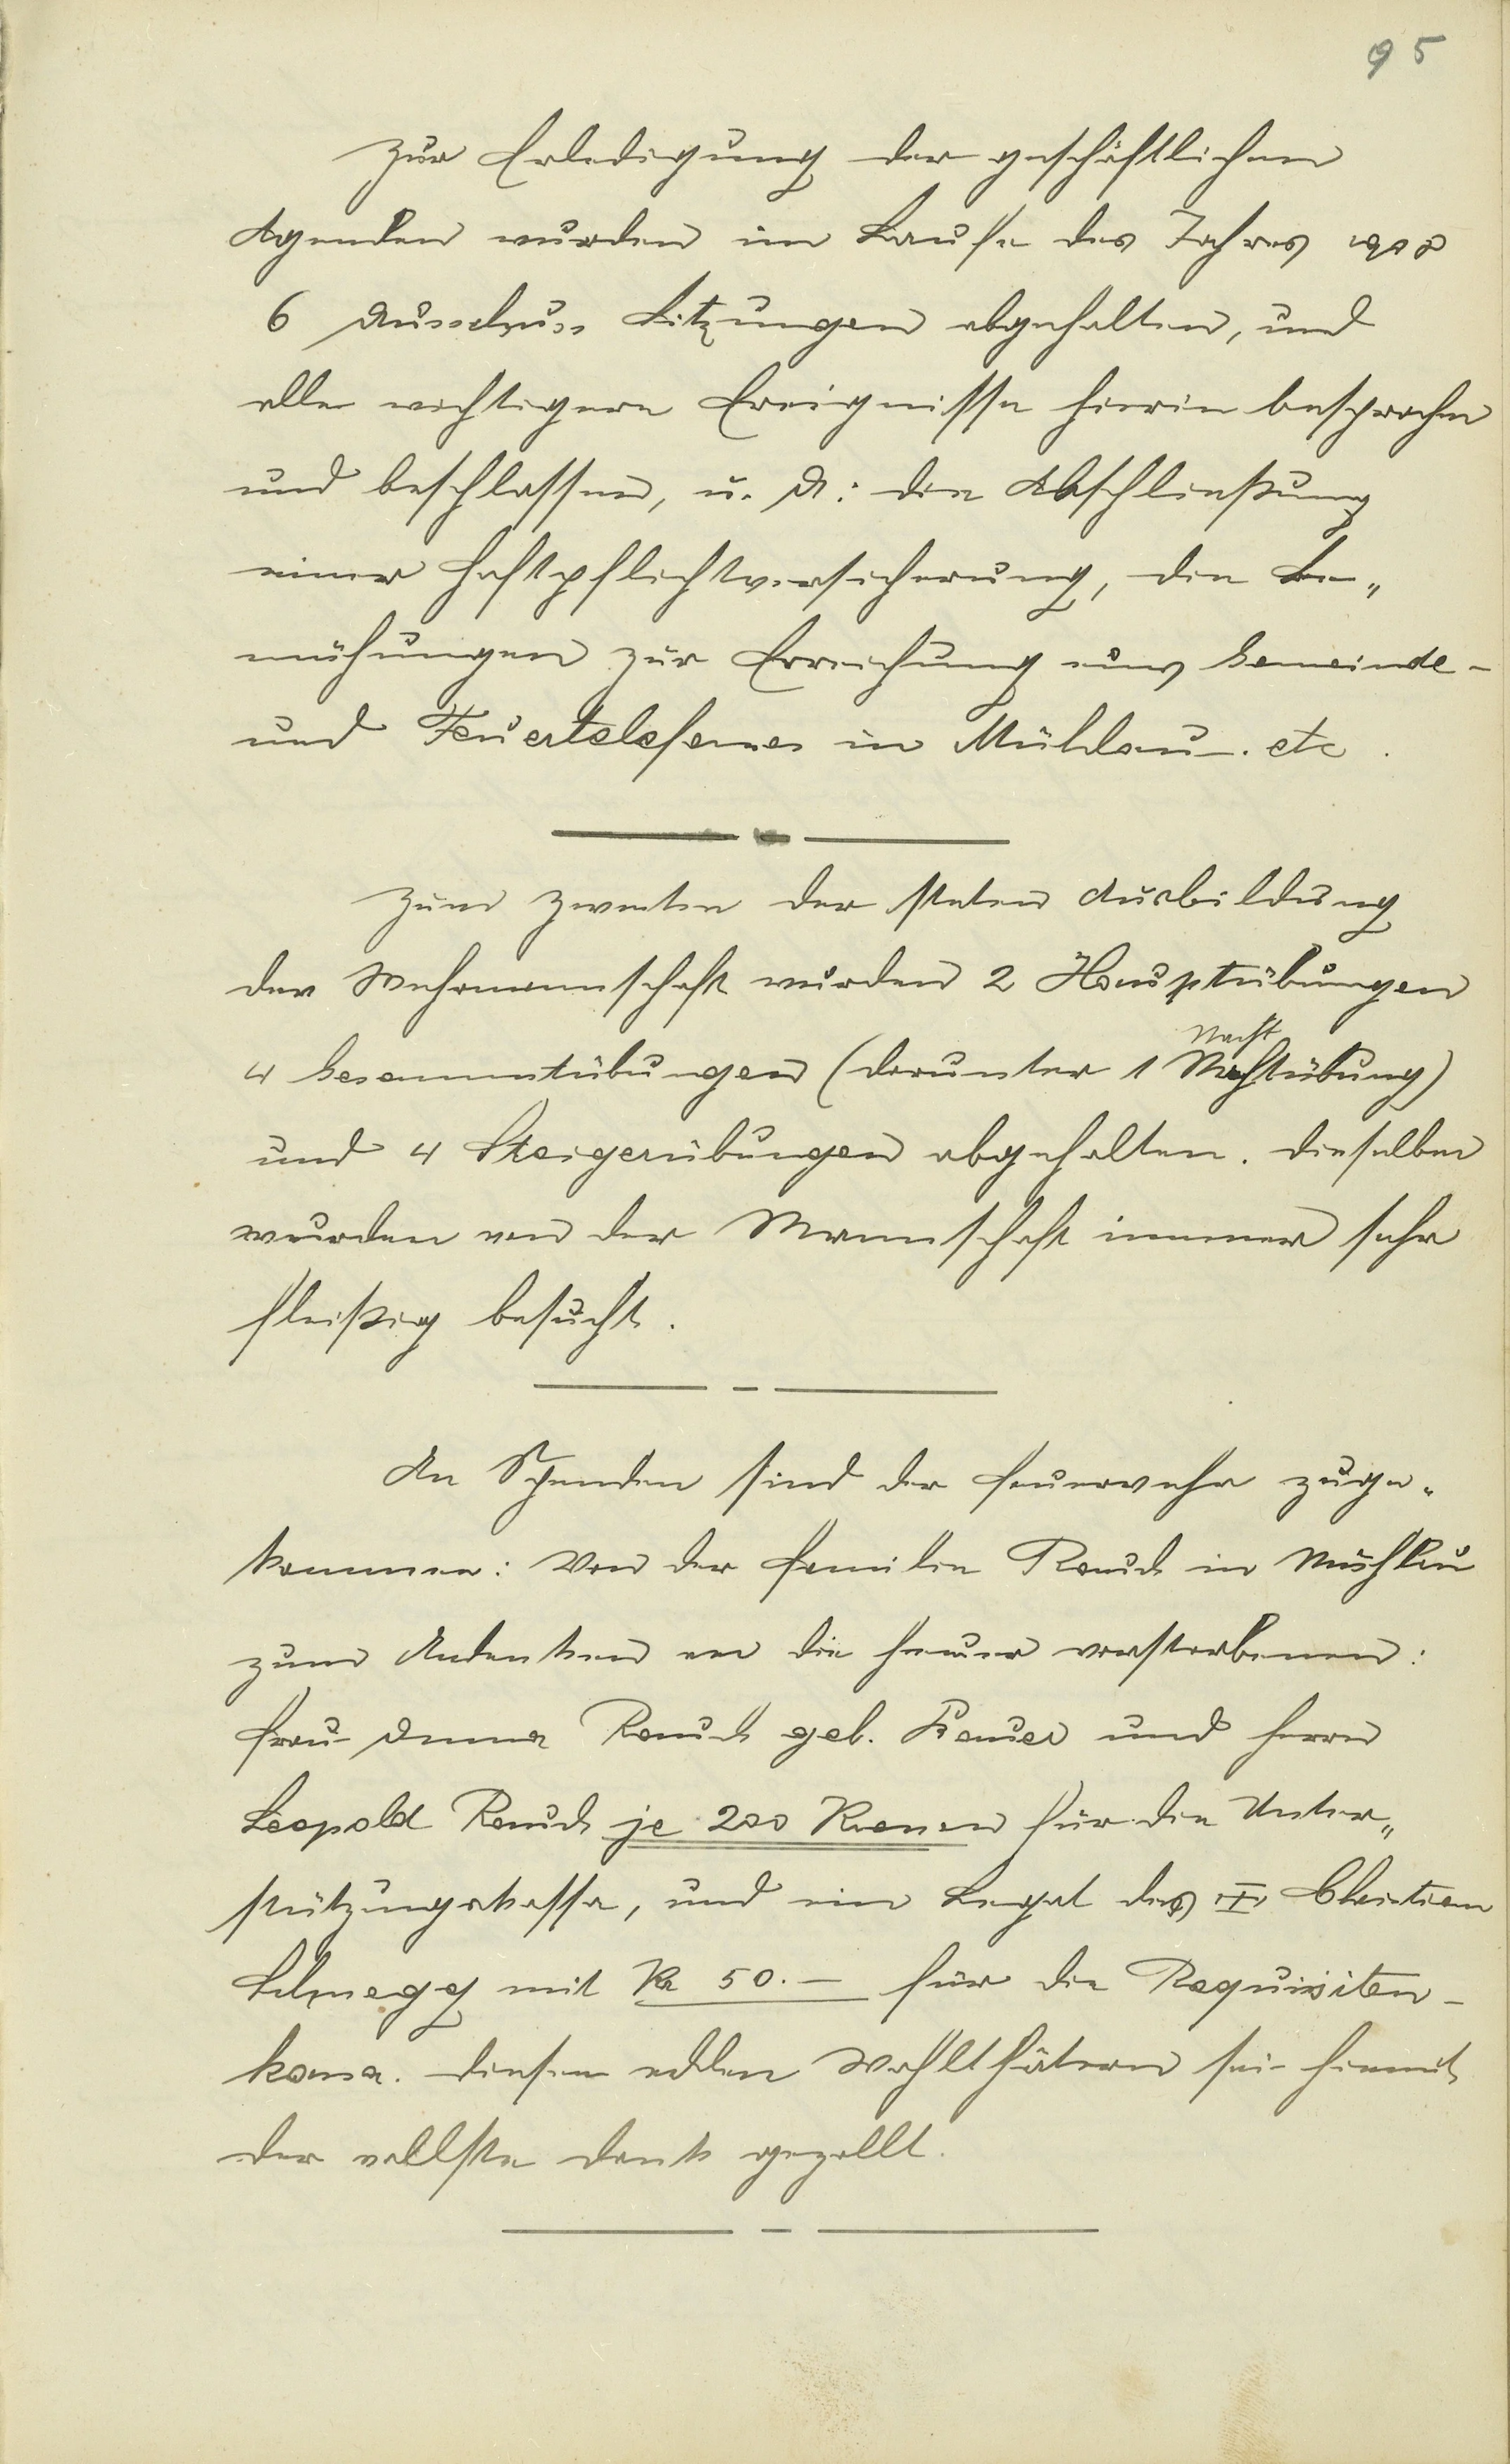 95
Zur Erledigung der geschäftlichen
Agenden wurden im Laufe des Jahres 1908
6 Ausschuss Sitzungen abgehalten, und
alle wichtigere Ereignisse hierin besprochen
und beschlossen, u. A: die Abschließung
einer Haftpflichtversicherung, die Be„
mühungen zur Erreichung eines Gemeinde-
und Feuertelefones in Mühlau. etc.
Zum Zwecke der steten Ausbildung
der Wehrmannschaft wurden 2 Hauptübungen
Nacht
4 Gesammtübungen (darunter 1 Nachtübung)
und 4 Steigerübungen abgehalten. Dieselben
wurden von der Mannschaft immer sehr
fleißig besucht.
An Spenden sind der Feuerwehr zuge„
kommen: Von der Familie Rauch in Mühlau
zum Andenken an die heuer verstorbenen:
Frau Anna Rauch geb. und Herrn
Leopold Rauch je 200 Kronen für die Unter„
stützungskassa, und ein Legat des Christian
mit Kr 50.- für die Requisiten-
kassa. Diesen edlen Wohlthätern sei hiemit
der vollste Dank gezollt.